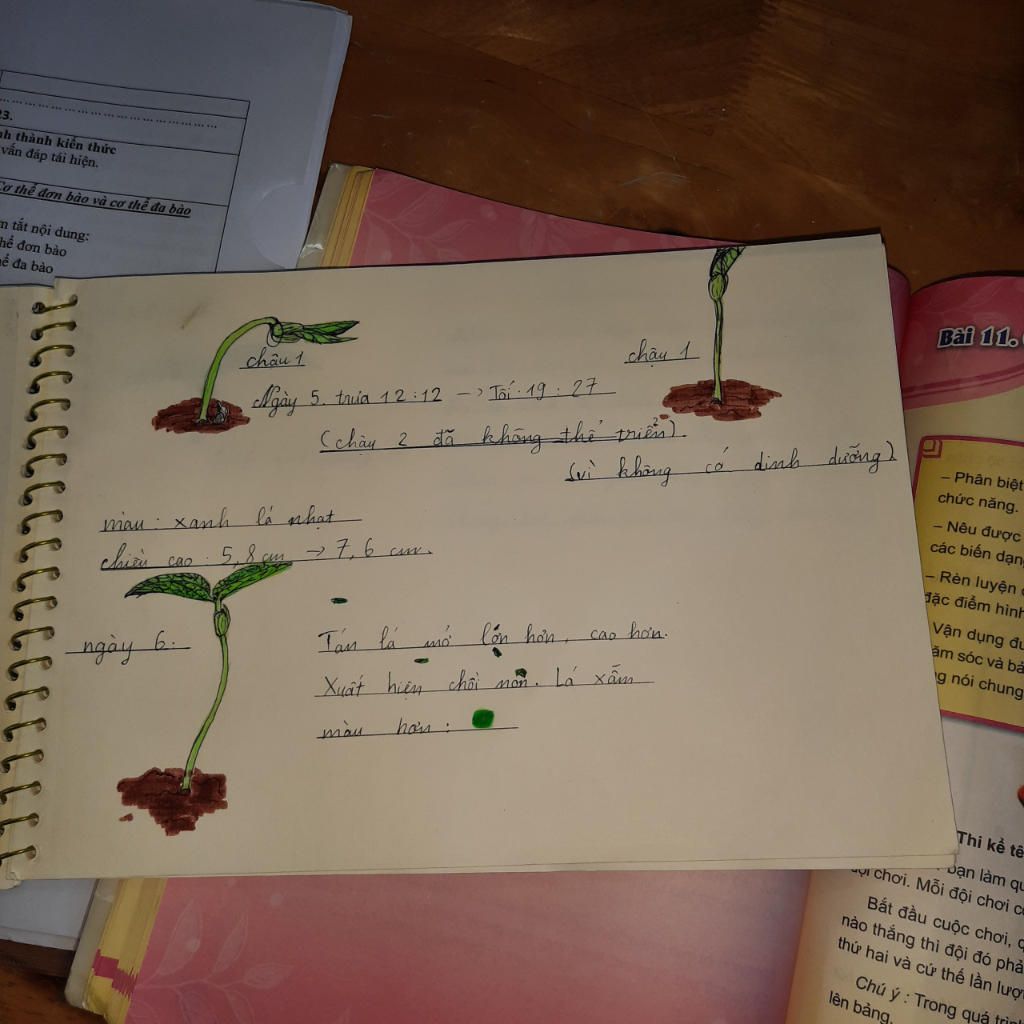 23.
nh thành kiến thức
vấn đáp tái hiện.
Cơ thể đơn bào và cơ thể đa bào
m tắt nội dung:
hể đơn bào
ể đa bào
chậu 1
chậu 1
Ngày 5. trưa 12:12 -> Tối 19:27
(chậu 2 đã không thể triển).
(vì không có dinh dưỡng).
màu: xanh lá nhạt
chiều cao: 5,8 cm -> 7,6 cm.
ngày 6:
Tán lá mở lớn hơn, cao hơn.
Xuất hiện chồi non. Lá xẫm
màu hơn:
Bài 11.
– Phân biệt
chức năng.
– Nêu được
các biến dạng
– Rèn luyện
đặc điểm hình
Vận dụng đu
ăm sóc và bả
g nói chung
Thi kể tê
bạn làm qu
ội chơi. Mỗi đội chơi c
Bắt đầu cuộc chơi, q
nào thắng thì đội đó phả
thứ hai và cứ thế lần lượ
Chú ý : Trong quá trìn
lên bảng.